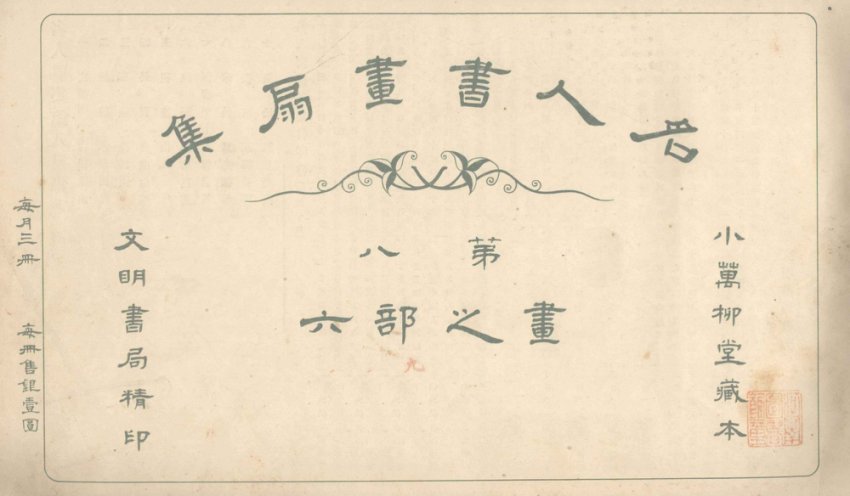 名人書畫扇集
小萬柳堂藏本
第八
畫之部六
九
文明書局精印
每月三冊
每冊售銀壹圓